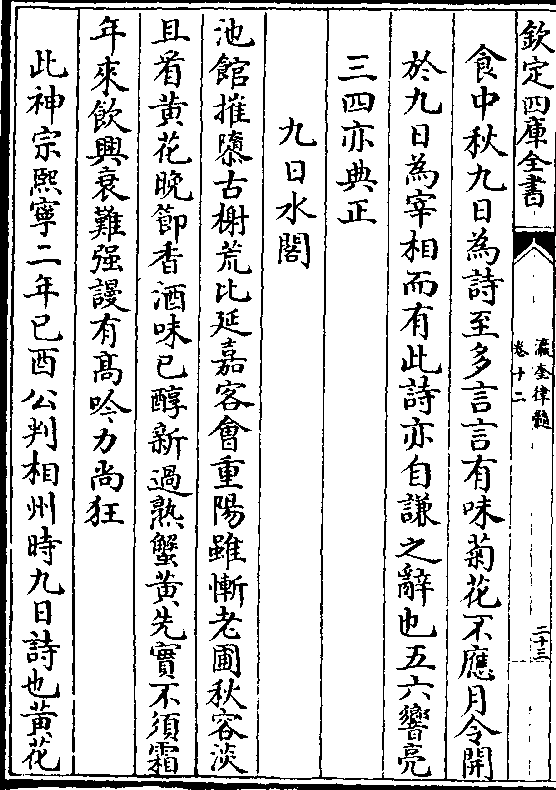 欽定四庫全書
瀛奎律髓
卷十二
二十三
食中秋九日為詩至多言言有味菊花不應月令開
於九日為宰相而有此詩亦自謙之辭也五六響亮
三四亦典正
九日水閣
池館摧隳古榭荒比延嘉客會重陽雖慚老圃秋容淡
且看黄花晚節香酒味已醇新過熟蟹黄先實不須霜
年來飲興衰難强謾有髙吟力尚狂
此神宗熙寧二年已酉公判相州時九日詩也黄花